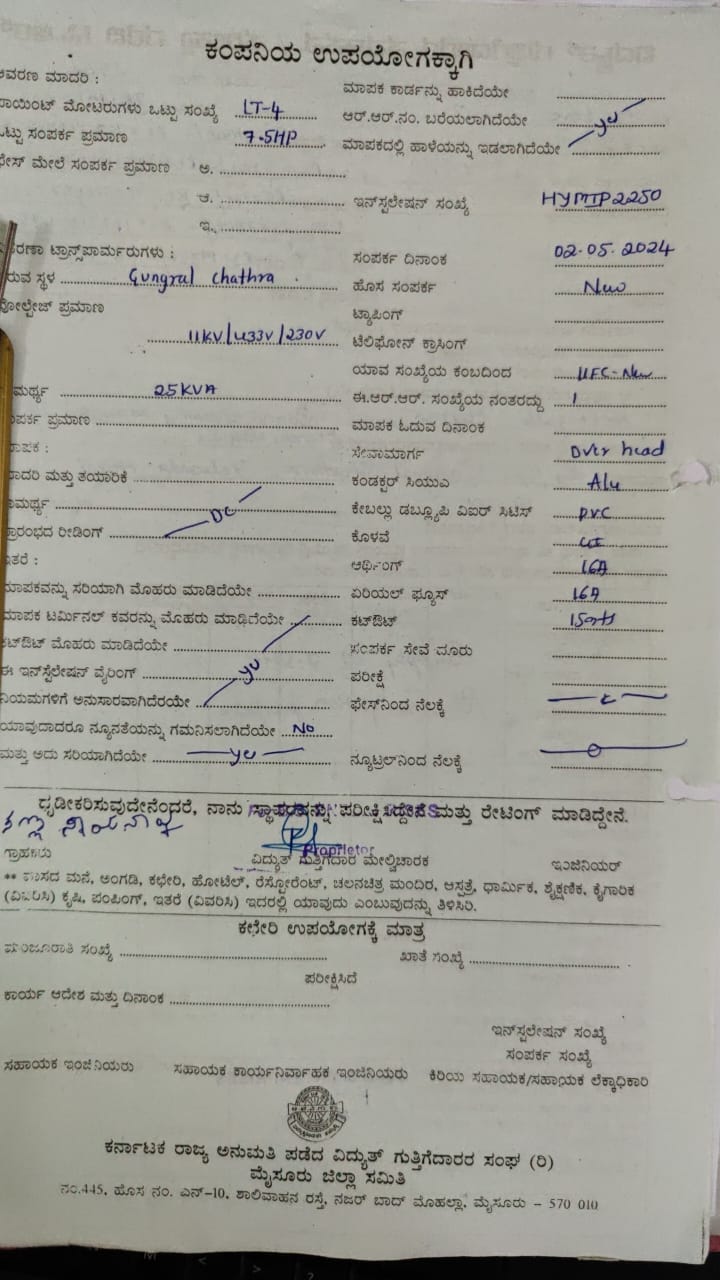 ಕಂಪನಿಯ ಉಪಯೋಗಕ್ಕಾಗಿ
ಆವರಣ ಮಾದರಿ :
ಮಾಪಕ ಕಾರ್ಡನ್ನು ಹಾಕಿದೆಯೇ
ಪಾಯಿಂಟ್ ಮೋಟರುಗಳು ಒಟ್ಟು ಸಂಖ್ಯೆ LT-4
ಆರ್.ಆರ್.ನಂ. ಬರೆಯಲಾಗಿದೆಯೇ
ಒಟ್ಟು ಸಂಪರ್ಕ ಪ್ರಮಾಣ 7.5HP
ಮಾಪಕದಲ್ಲಿ ಹಾಳೆಯನ್ನು ಇಡಲಾಗಿದೆಯೇ
ಫೇಸ್ ಮೇಲೆ ಸಂಪರ್ಕ ಪ್ರಮಾಣ ಅ.
ಆ.
ಇನ್‌ಸ್ಟಲೇಷನ್ ಸಂಖ್ಯೆ HYMIP2250
ಇ.
ಸರಣಾ ಟ್ರಾನ್ಸ್‌ಪಾರ್ಮರುಗಳು :
ಸಂಪರ್ಕ ದಿನಾಂಕ 02.05.2024
ಇರುವ ಸ್ಥಳ Gungral Chathra
ಹೊಸ ಸಂಪರ್ಕ New
ವೋಲ್ಟೇಜ್ ಪ್ರಮಾಣ
ಟ್ಯಾಪಿಂಗ್
11KV/433V/230V
ಟೆಲಿಫೋನ್ ಕ್ರಾಸಿಂಗ್
ಯಾವ ಸಂಖ್ಯೆಯ ಕಂಬದಿಂದ UFC-New
ಸಾಮರ್ಥ್ಯ 25KVA
ಈ.ಆರ್.ಆರ್. ಸಂಖ್ಯೆಯ ನಂತರದ್ದು 1
ಸಂಪರ್ಕ ಪ್ರಮಾಣ
ಮಾಪಕ ಓದುವ ದಿನಾಂಕ
ಮಾಪಕ :
ಸೇವಾಮಾರ್ಗ Over head
ಮಾದರಿ ಮತ್ತು ತಯಾರಿಕೆ
ಕಂಡಕ್ಟರ್ ಸಿಯುಎ Alu
ಸಾಮರ್ಥ್ಯ DC
ಕೇಬಲ್ಲು ಡಬ್ಲ್ಯೂಪಿ ವಿಐರ್ ಸಿಟಿಸ್ PVC
ಪ್ರಾರಂಭದ ರೀಡಿಂಗ್
ಕೊಳವೆ GI
ಇತರೆ :
ಆರ್ಥಿಂಗ್ 16A
ಮಾಪಕವನ್ನು ಸರಿಯಾಗಿ ಮೊಹರು ಮಾಡಿದೆಯೇ
ಏರಿಯಲ್ ಫ್ಯೂಸ್ 16A
ಮಾಪಕ ಟರ್ಮಿನಲ್ ಕವರನ್ನು ಮೊಹರು ಮಾಡಿದೆಯೇ
ಕಟ್‌ಔಟ್
ಕಟ್‌ಔಟ್ ಮೊಹರು ಮಾಡಿದೆಯೇ
ಸಂಪರ್ಕ ಸೇವೆ ದೂರು
ಈ ಇನ್‌ಸ್ಟಲೇಷನ್ ವೈರಿಂಗ್
ಪರೀಕ್ಷೆ
ನಿಯಮಗಳಿಗೆ ಅನುಸಾರವಾಗಿದೆರಯೇ
ಫೇಸ್‌ನಿಂದ ನೆಲಕ್ಕೆ
ಯಾವುದಾದರೂ ನ್ಯೂನತೆಯನ್ನು ಗಮನಿಸಲಾಗಿದೆಯೇ No
ಮತ್ತು ಅದು ಸರಿಯಾಗಿದೆಯೇ
ನ್ಯೂಟ್ರಲ್‌ನಿಂದ ನೆಲಕ್ಕೆ
ಧೃಡೀಕರಿಸುವುದೇನೆಂದರೆ, ನಾನು ಸ್ಥಾವರವನ್ನು ಪರೀಕ್ಷಿಸಿದ್ದೇನೆ ಮತ್ತು ರೇಟಿಂಗ್ ಮಾಡಿದ್ದೇನೆ.
Proprietor
ಗ್ರಾಹಕರು
ವಿದ್ಯುತ್ ಗುತ್ತಿಗೆದಾರ ಮೇಲ್ವಿಚಾರಕ
ಇಂಜಿನಿಯರ್
** ವಾಸದ ಮನೆ, ಅಂಗಡಿ, ಕಛೇರಿ, ಹೋಟೆಲ್, ರೆಸ್ಟೋರೆಂಟ್, ಚಲನಚಿತ್ರ ಮಂದಿರ, ಆಸ್ಪತ್ರೆ, ಧಾರ್ಮಿಕ, ಶೈಕ್ಷಣಿಕ, ಕೈಗಾರಿಕ
(ವಿವರಿಸಿ) ಕೃಷಿ, ಪಂಪಿಂಗ್, ಇತರೆ (ವಿವರಿಸಿ) ಇದರಲ್ಲಿ ಯಾವುದು ಎಂಬುವುದನ್ನು ತಿಳಿಸಿರಿ.
ಕಛೇರಿ ಉಪಯೋಗಕ್ಕೆ ಮಾತ್ರ
ಮಂಜೂರಾತಿ ಸಂಖ್ಯೆ
ಖಾತೆ ಸಂಖ್ಯೆ
ಪರೀಕ್ಷಿಸಿದೆ
ಕಾರ್ಯ ಆದೇಶ ಮತ್ತು ದಿನಾಂಕ
ಇನ್‌ಸ್ಟಲೇಷನ್ ಸಂಖ್ಯೆ
ಸಂಪರ್ಕ ಸಂಖ್ಯೆ
ಸಹಾಯಕ ಇಂಜಿನಿಯರು
ಸಹಾಯಕ ಕಾರ್ಯನಿರ್ವಾಹಕ ಇಂಜಿನಿಯರು
ಕಿರಿಯ ಸಹಾಯಕ/ಸಹಾಯಕ ಲೆಕ್ಕಾಧಿಕಾರಿ
ಕರ್ನಾಟಕ ರಾಜ್ಯ ಅನುಮತಿ ಪಡೆದ ವಿದ್ಯುತ್ ಗುತ್ತಿಗೆದಾರರ ಸಂಘ (ರಿ)
ಮೈಸೂರು ಜಿಲ್ಲಾ ಸಮಿತಿ
ನಂ.445, ಹೊಸ ನಂ. ಎನ್-10, ಶಾಲಿವಾಹನ ರಸ್ತೆ, ನಜರ್ ಬಾದ್ ಮೊಹಲ್ಲಾ, ಮೈಸೂರು - 570 010